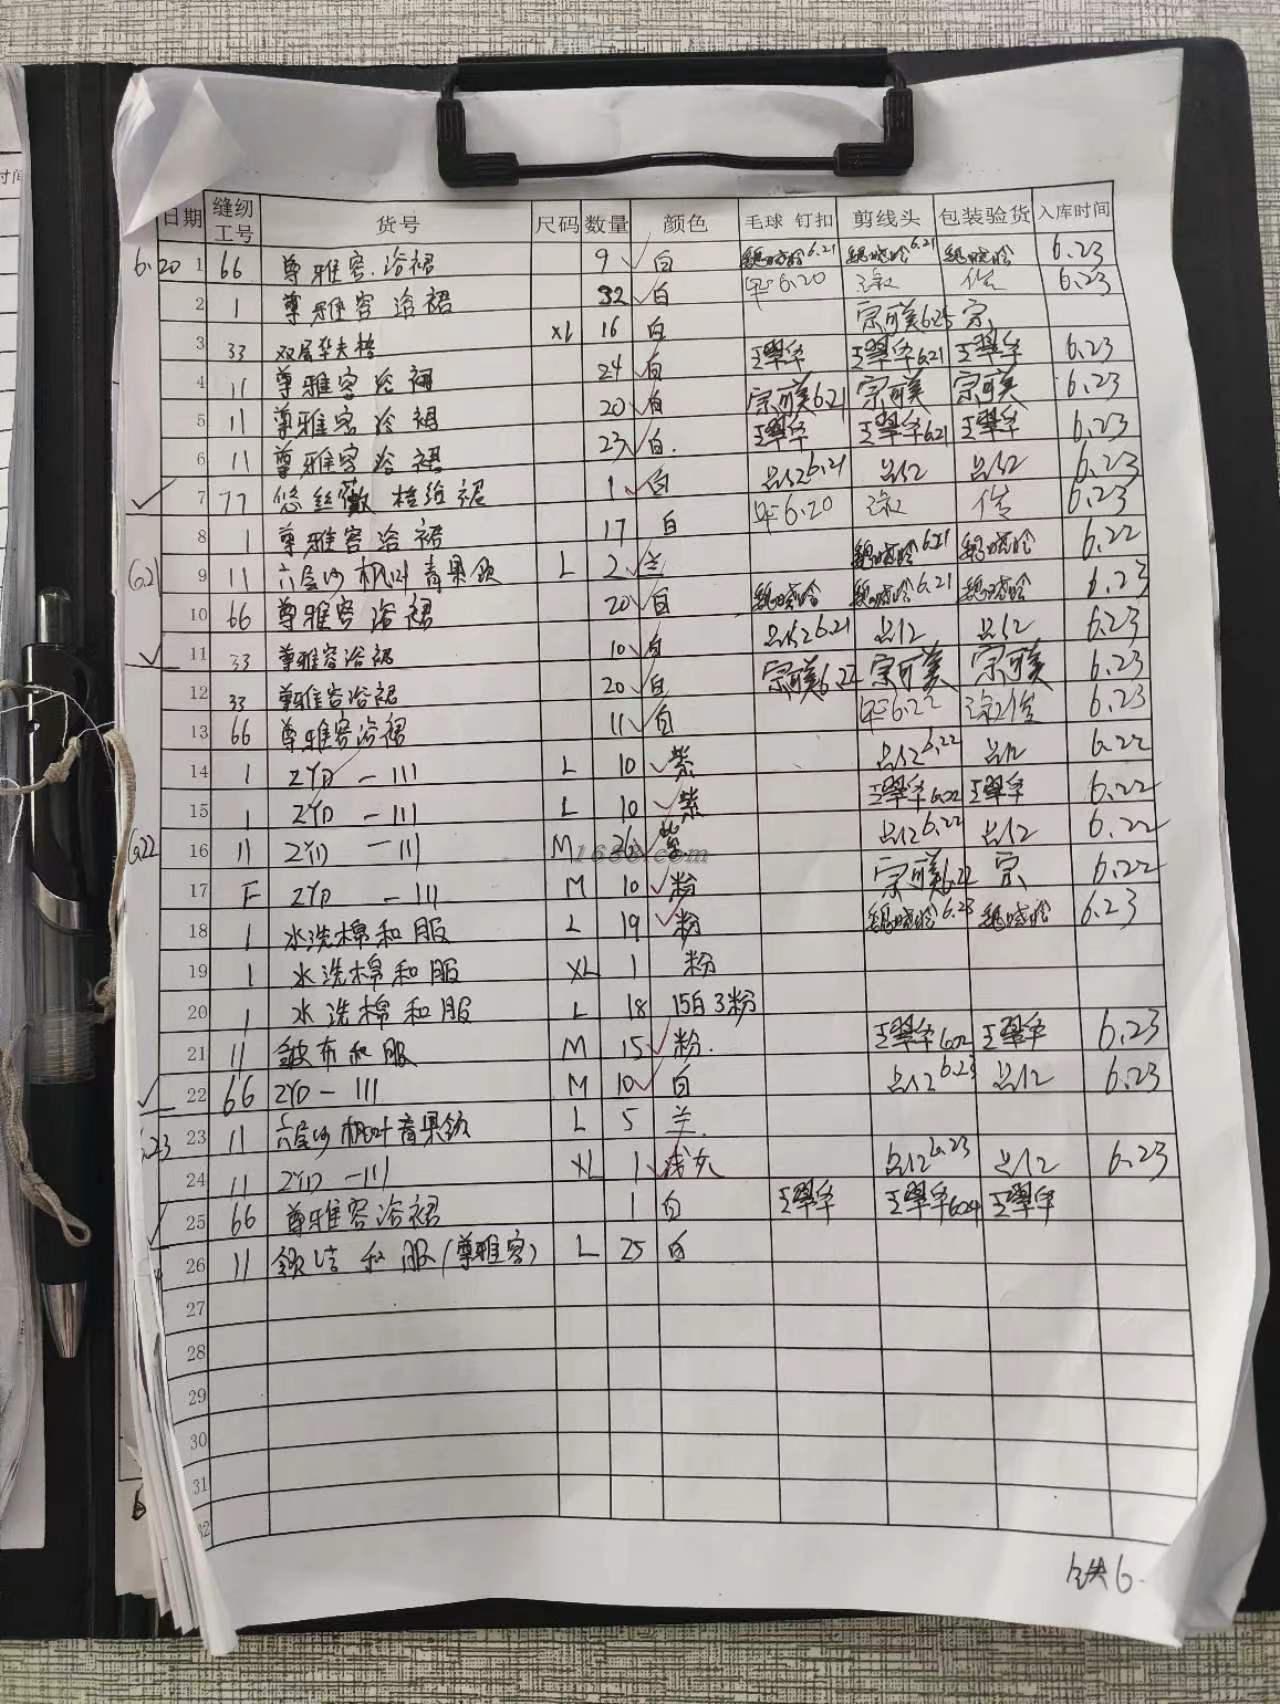 日期 缝纫工号 货号 尺码 数量 颜色 毛球 钉扣 剪线头 包装验货 入库时间
6.20 1 66 尊雅容浴裙 9 白 魏晓玲6.21 魏晓玲6.21 魏晓玲 6.23
2 1 尊雅容浴裙 32 白 6.20 6.23
3 33 双层华夫格 XL 16 白 宗可美6.25 宗
4 11 尊雅容浴裙 24 白 王翠华 王翠华6.21 王翠华 6.23
5 11 尊雅容浴裙 20 白 宗可美6.21 宗可美 宗可美 6.23
6 11 尊雅容浴裙 23 白. 王翠华 王翠华6.21 王翠华 6.23
7 77 悠丝薇 裙 1 白 6.21 6.23
8 1 尊雅容浴裙 17 白 6.20 6.23
6.21 9 11 六层纱枫叶青果领 L 2 兰 魏晓玲6.21 魏晓玲 6.22
10 66 尊雅容浴裙 20 白 魏晓玲 魏晓玲6.21 魏晓玲 6.23
11 33 尊雅容浴裙 10 白 6.21 6.23
12 33 尊雅容浴裙 20 白 宗可美6.22 宗可美 宗可美 6.23
13 66 尊雅容浴裙 11 白 6.22 6.23
14 1 ZYD-111 L 10 紫 6.22 6.22
15 1 ZYD-111 L 10 紫 王翠华6.22 王翠华 6.22
6.22 16 11 ZYD-111 M 26 紫 6.22 6.22
1688.com
17 F ZYD-111 M 10 粉 宗可美6.22 宗 6.22
18 1 水洗棉和服 L 19 粉 魏晓玲6.23 魏晓玲 6.23
19 1 水洗棉和服 XL 1 粉
20 1 水洗棉和服 L 18 15白3粉
21 11 皱布和服 M 15 粉. 王翠华6.22 王翠华 6.23
22 66 ZYD-111 M 10 白 6.23 6.23
6.23 23 11 六层纱枫叶青果领 L 5 兰.
24 11 ZYD-111 XL 1 浅灰 6.23 6.23
25 66 尊雅容浴裙 1 白 王翠华 王翠华6.24 王翠华
26 11 和服(尊雅容) L 25 白
27
28
29
30
31
32